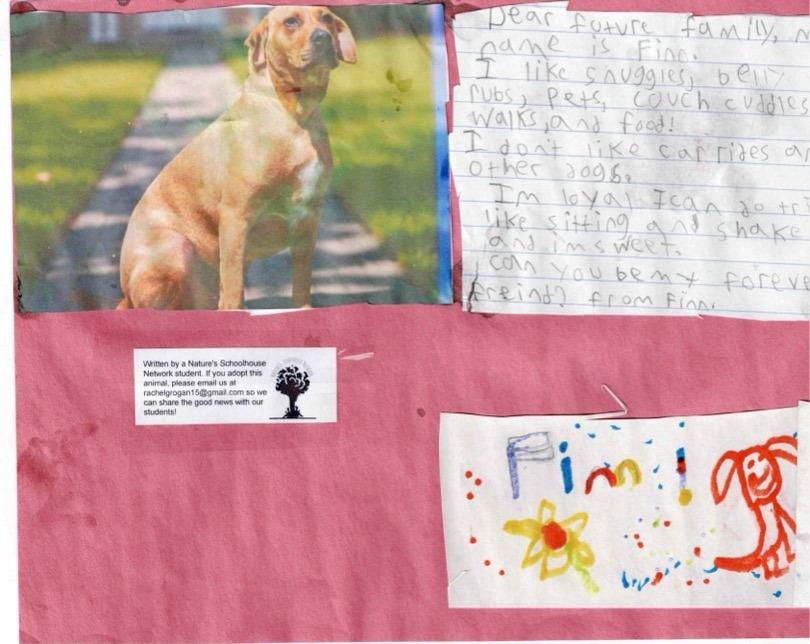 Dear future family, m
name is Finn.
I like snuggies, belly
rubs, pets, couch cuddles
walks, and food!
I don't like car rides or
other dogs.
I'm loyal I can do tri
like sitting and shake
and im sweet.
can you be my forev
freind? from Finn.
Written by a Nature's Schoolhouse
Network student. If you adopt this
animal, please email us at
rachelgrogan15@gmail.com so we
can share the good news with our
students!
Finn!